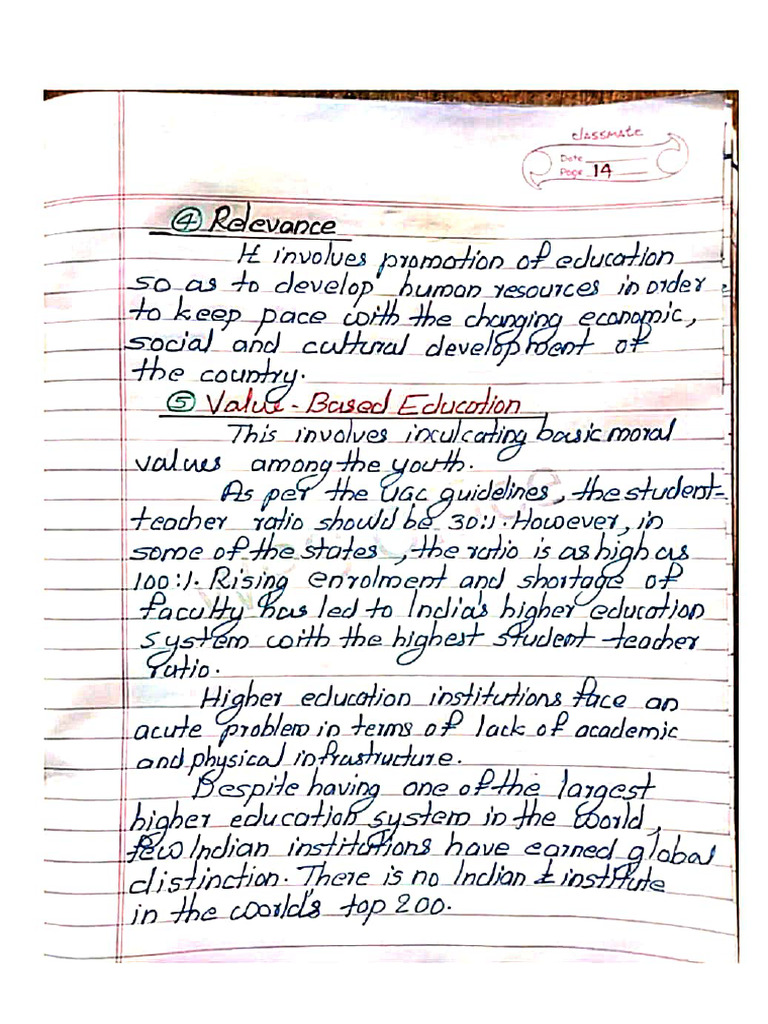 classmate
Date
Page 14
④ Relevance
It involves promotion of education
so as to develop human resources in order
to keep pace with the changing economic,
social and cultural development of
the country.
⑤ Value-Based Education
This involves inculcating basic moral
values among the youth.
As per the UGC guidelines, the student-
teacher ratio should be 30:1. However, in
some of the states, the ratio is as high as
100:1. Rising enrolment and shortage of
faculty has led to India's higher education
system with the highest student-teacher
ratio.
Higher education institutions face an
acute problem in terms of lack of academic
and physical infrastructure.
Despite having one of the largest
higher education system in the world,
few Indian institutions have earned global
distinction. There is no Indian institute
in the world's top 200.